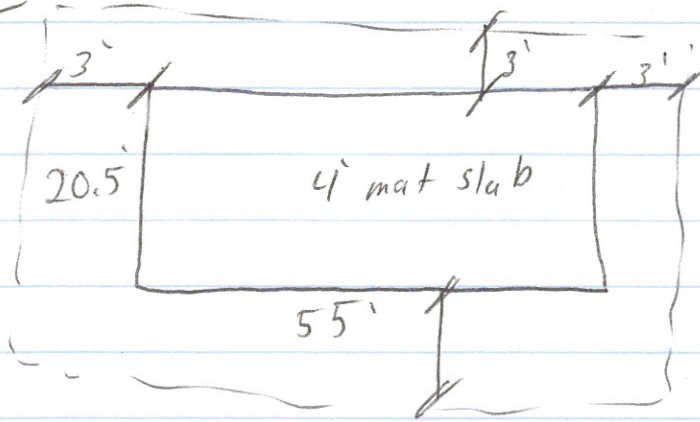 3'
3'
3'
20.5'
4' mat slab
55'